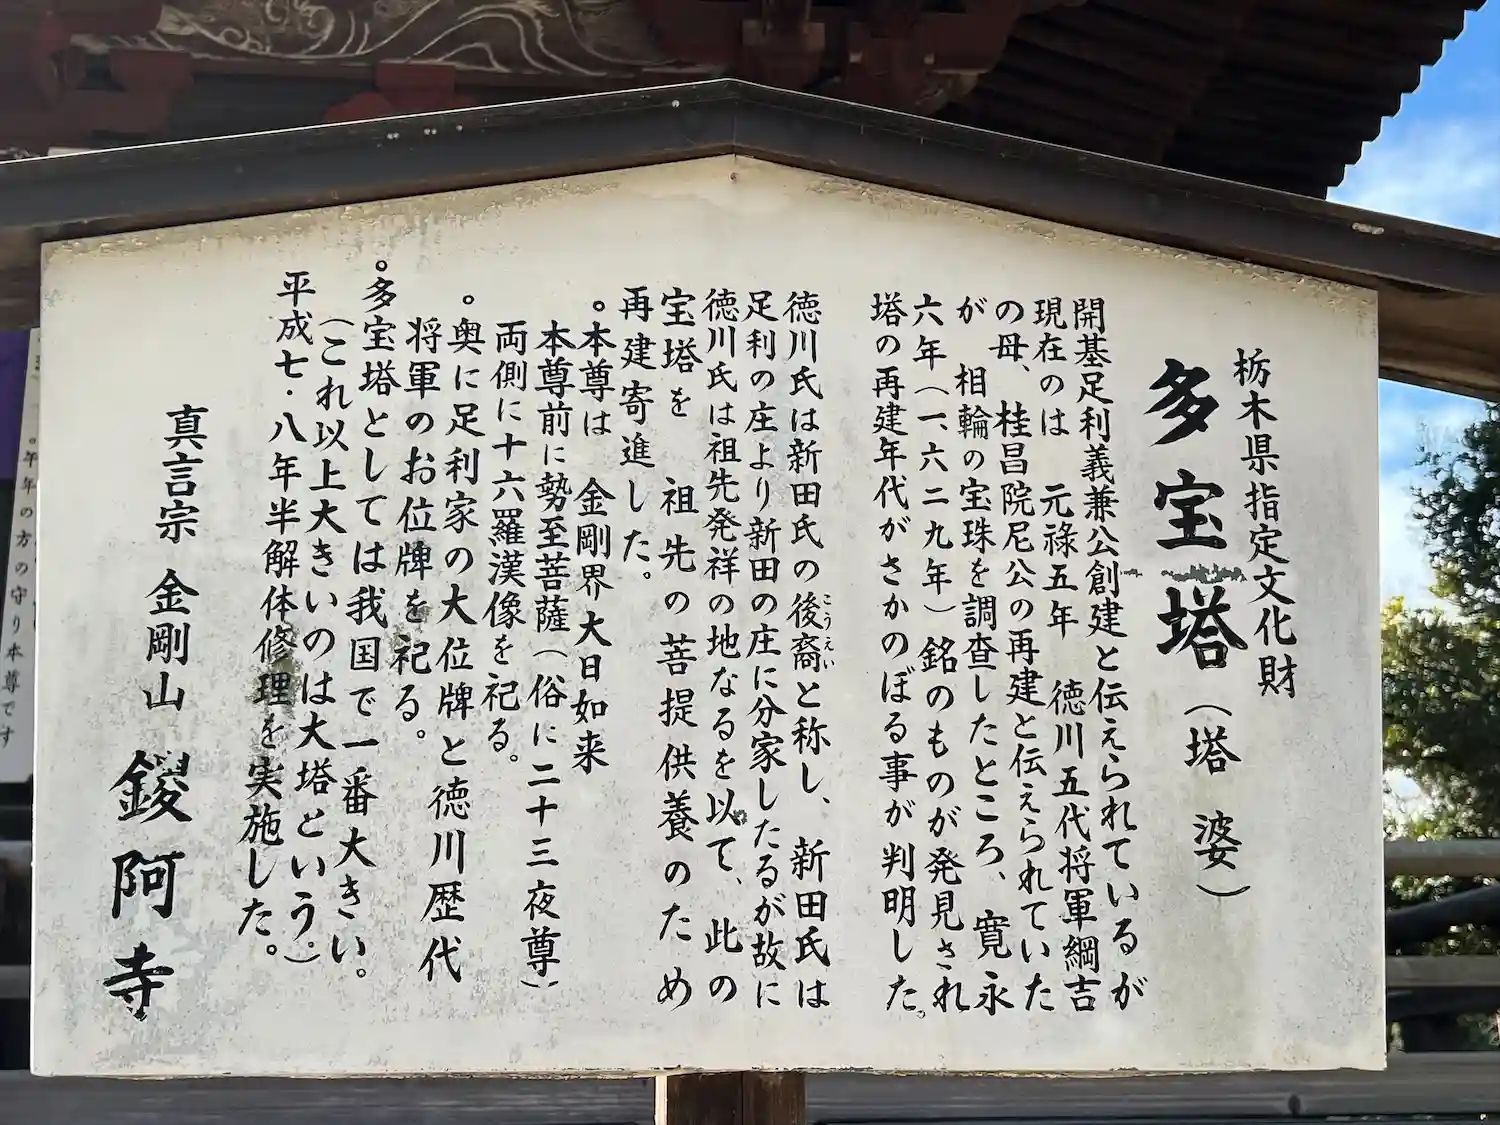 栃木県指定文化財
多宝塔（塔婆）
開基足利義兼公創建と伝えられているが
現在のは　元禄五年　徳川五代将軍綱吉
の母、桂昌院尼公の再建と伝えられていた
が　相輪の宝珠を調査したところ、寛永
六年（一、六二九年）銘のものが発見され
塔の再建年代がさかのぼる事が判明した。
徳川氏は新田氏の後裔と称し、新田氏は
こうえい
足利の庄より新田の庄に分家したるが故に
徳川氏は祖先発祥の地なるを以て、此の
宝塔を　祖先の菩提供養のため
再建寄進した。
。本尊は　金剛界大日如来
本尊前に勢至菩薩（俗に二十三夜尊）
両側に十六羅漢像を祀る。
。奥に足利家の大位牌と徳川歴代
将軍のお位牌を祀る。
。多宝塔としては我国で一番大きい。
（これ以上大きいのは大塔という。）
平成七・八年半解体修理を実施した。
真言宗　金剛山　鑁阿寺
。年年の方の守り本尊です